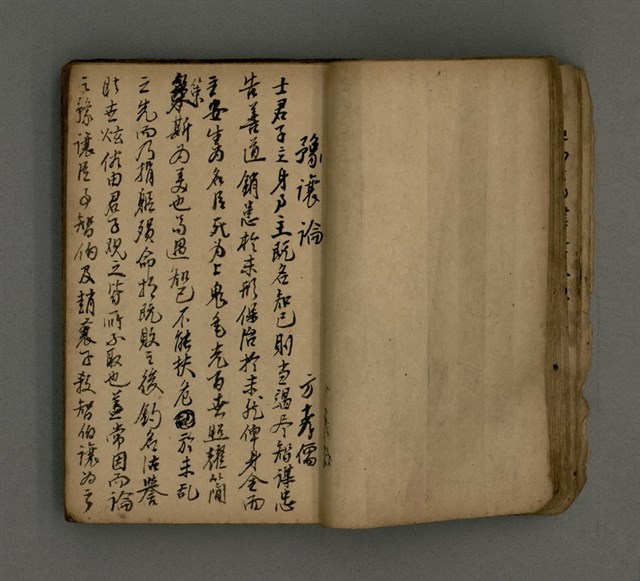 豫讓論
方孝儒
士君子立身事主既名知己則當竭尽智謀忠
告善道銷患於未形保治於未然俾身全而
主安生為名臣死為上鬼垂光百世照耀簡
策斯為美也苟遇知己不能扶危於未乱
之先而乃捐軀殞命於既敗之後釣名沽譽
眩世炫俗由君子观之皆所不取也盖常因而論
之豫讓臣事智伯及趙襄子殺智伯讓為之